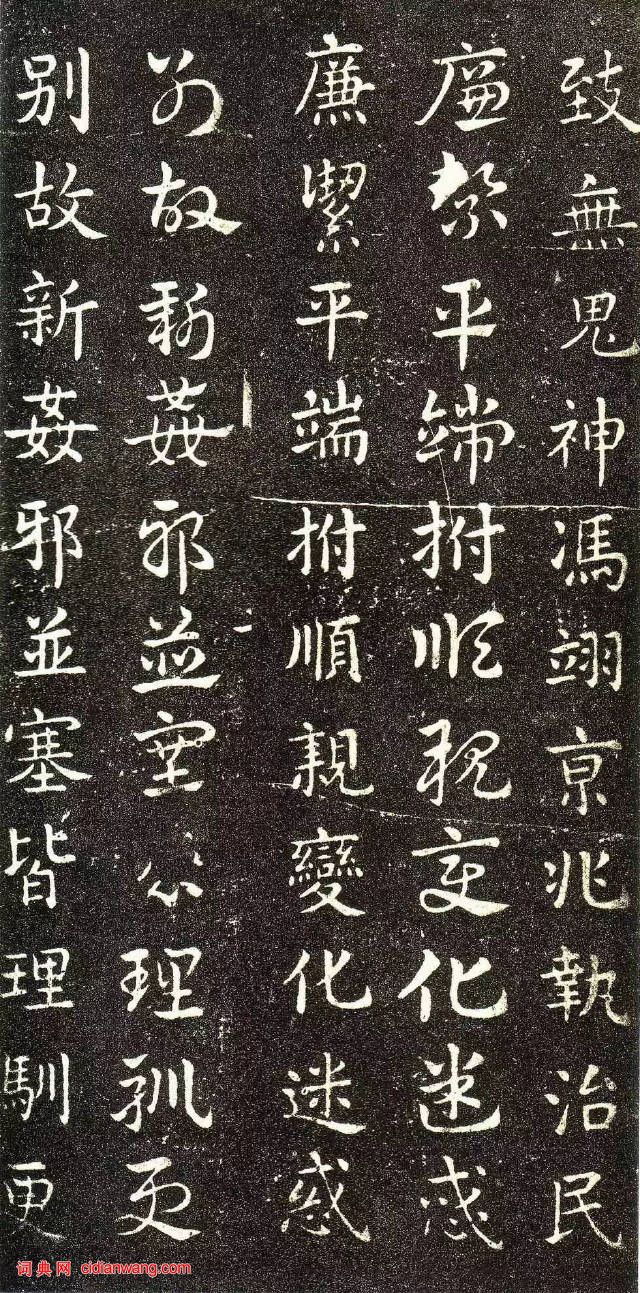 致無鬼神馮翊京兆執治民
廉絜平端拊順親變化迷惑
廉潔平端拊順親變化迷惑
別故新姦邪並塞皆理馴更
别故新姦邪並塞皆理馴更
词典网 cidianwang.com